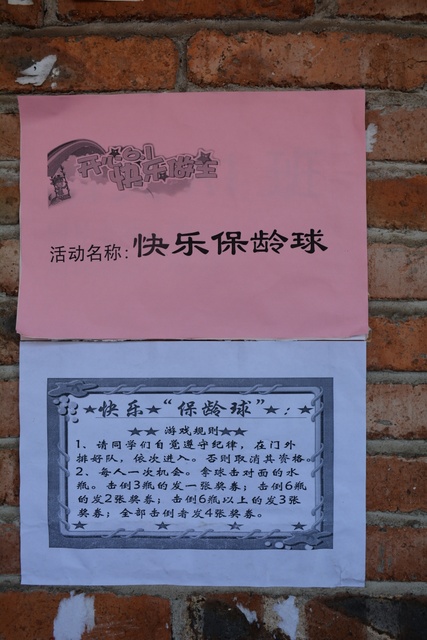 开心6.1
快乐俳主
活动名称:快乐保龄球
★快乐★“保龄球”★:★
★★游戏规则★★
1、请同学们自觉遵守纪律，在门外
排好队，依次进入。否则取消其资格。
2、每人一次机会。拿球击对面的水
瓶。击倒3瓶的发一张奖券；击倒6瓶
的发2张奖券；击倒6瓶以上的发3张
奖券；全部击倒者发4张奖券。